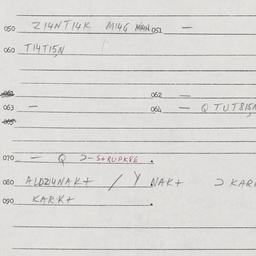 050 Z14NT14K M14G 051 —
060 T14T15N
062 —
063 — 064 — Q TUT815N
070 — Q Ɔ-S+RUPK86 .
080 ALDZ14NAK+ / Y NAK+ Ɔ KAR
090 KARK+ .